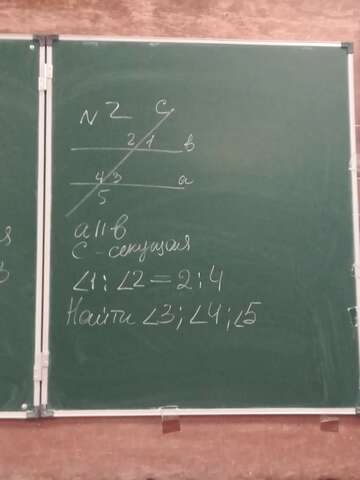 N 2 C
2 1 b
4 3 a
5
a || b
c - секущая
∠1 : ∠2 = 2 : 4
Найти ∠3 ; ∠4 ; ∠5